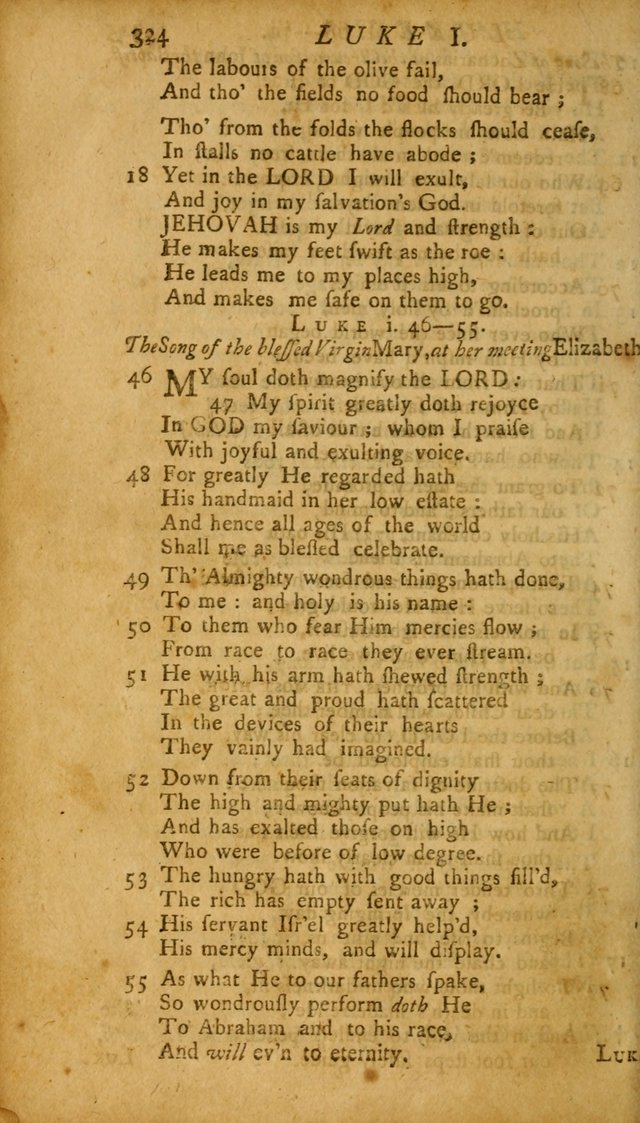 324 LUKE I.
The labours of the olive fail,
And tho' the fields no food ſhould bear ;
Tho' from the folds the flocks ſhould ceaſe,
In ſtalls no cattle have abode ;
18 Yet in the LORD I will exult,
And joy in my ſalvation's God.
JEHOVAH is my Lord and ſtrength :
He makes my feet ſwift as the roe :
He leads me to my places high,
And makes me ſafe on them to go.
LUKE i. 46—55.
The Song of the bleſſed Virgin Mary, at her meeting Elizabeth
46 MY ſoul doth magnify the LORD :
47 My ſpirit greatly doth rejoyce
In GOD my ſaviour ; whom I praiſe
With joyful and exulting voice.
48 For greatly He regarded hath
His handmaid in her low eſtate :
And hence all ages of the world
Shall me as bleſſed celebrate.
49 Th' Almighty wondrous things hath done,
To me : and holy is his name :
50 To them who fear Him mercies flow ;
From race to race they ever ſtream.
51 He with his arm hath ſhewed ſtrength ;
The great and proud hath ſcattered
In the devices of their hearts
They vainly had imagined.
52 Down from their ſeats of dignity
The high and mighty put hath He ;
And has exalted thoſe on high
Who were before of low degree.
53 The hungry hath with good things fill'd,
The rich has empty ſent away ;
54 His ſervant Iſr'el greatly help'd,
His mercy minds, and will diſplay.
55 As what He to our fathers ſpake,
So wondrouſly perform doth He
To Abraham and to his race,
And will ev'n to eternity. LUK